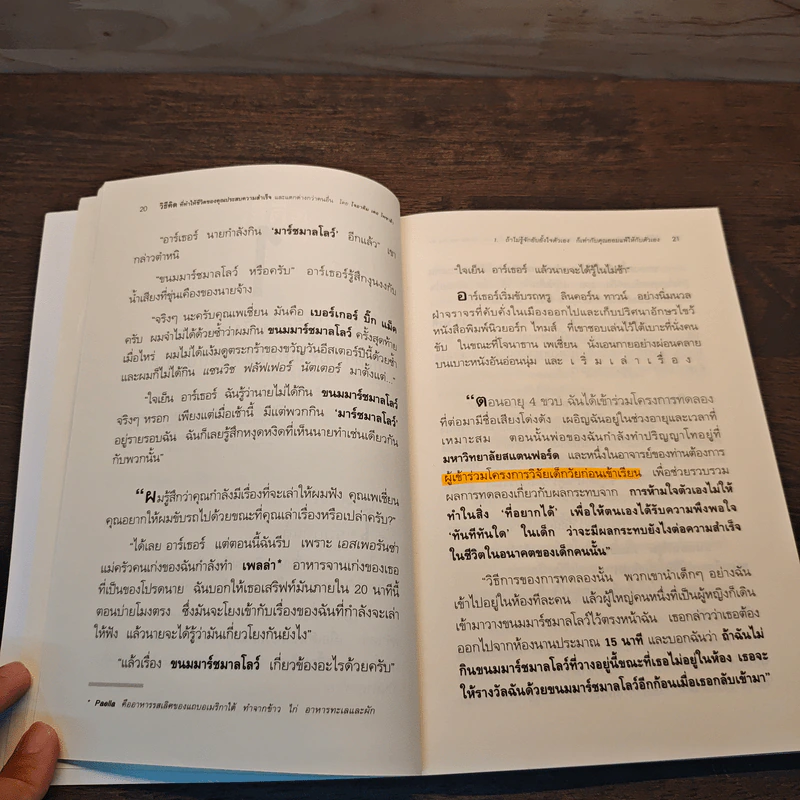 20 วิธีคิด ที่ทำให้ชีวิตของคุณประสบความสำเร็จ และแตกต่างกว่าคนอื่น โดย โจอาคิม เดอ
"อาร์เธอร์ นายกำลังกิน 'มาร์ชมาลโลว์' อีกแล้ว" เขา
กล่าวตำหนิ
"ขนมมาร์ชมาลโลว์ หรือครับ" อาร์เธอร์รู้สึกงุนงงกับ
น้ำเสียงที่ขุ่นเคืองของนายจ้าง
"จริงๆ นะครับคุณเพเชี่ยน มันคือ เบอร์เกอร์ บิ๊ก แม็ค
ครับ ผมจำไม่ได้ด้วยซ้ำว่าผมกิน ขนมมาร์ชมาลโลว์ ครั้งสุดท้าย
เมื่อไหร่ ผมไม่ได้แง้มดูตระกร้าของขวัญวันอีสเตอร์ปีนี้ด้วยซ้ำ
และผมก็ไม่ได้กิน แซนวิช ฟลัฟเฟอร์ นัตเตอร์ มาตั้งแต่..."
"ใจเย็น อาร์เธอร์ ฉันรู้ว่านายไม่ได้กิน ขนมมาร์ชมาลโลว์
จริงๆ หรอก เพียงแต่เมื่อเช้านี้ มีแต่พวกกิน 'มาร์ชมาลโลว์'
อยู่รายรอบฉัน ฉันก็เลยรู้สึกหงุดหงิดที่เห็นนายทำเช่นเดียวกัน
กับพวกนั้น"
"ผมรู้สึกว่าคุณกำลังมีเรื่องที่จะเล่าให้ผมฟัง คุณเพเชี่ยน
คุณอยากให้ผมขับรถไปด้วยขณะที่คุณเล่าเรื่องหรือเปล่าครับ?"
"ได้เลย อาร์เธอร์ แต่ตอนนี้ฉันรีบ เพราะ เอสเพอรันซ่า
แม่ครัวคนเก่งของฉันกำลังทำ เพลล่า* อาหารจานเก่งของเธอ
ที่เป็นของโปรดนาย ฉันบอกให้เธอเสริฟท์มันภายใน 20 นาทีนี้
ตอนบ่ายโมงตรง ซึ่งมันจะโยงเข้ากับเรื่องของฉันที่กำลังจะเล่า
ให้ฟัง แล้วนายจะได้รู้ว่ามันเกี่ยวโยงกันยังไง"
"แล้วเรื่อง ขนมมาร์ชมาลโลว์ เกี่ยวข้องอะไรด้วยครับ"
* Paella คืออาหารรสเลิศของแถบอเมริกาใต้ ทำจากข้าว ไก่ อาหารทะเลและผัก
1 ถ้าไม่รู้จักยับยั้งใจตัวเอง ก็เท่ากับคุณยอมแพ้ให้กับตัวเอง 21
"ใจเย็น อาร์เธอร์ แล้วนายจะได้รู้ในไม่ช้า"
อาร์เธอร์เริ่มขับรถหรู ลินคอร์น ทาวน์ อย่างนิ่มนวล
ฝ่าจราจรที่คับคั่งในเมืองออกไปและเก็บปริศนาอักษรไขว้
หนังสือพิมพ์นิวยอร์ก ไทมส์ ที่เขาชอบเล่นไว้ใต้เบาะที่นั่งคน
ขับ ในขณะที่โจนาธาน เพเชี่ยน นั่งเอนกายอย่างผ่อนคลาย
บนเบาะหนังอันอ่อนนุ่ม และ เริ่มเล่าเรื่อง
"ตอนอายุ 4 ขวบ ฉันได้เข้าร่วมโครงการทดลอง
ที่ต่อมามีชื่อเสียงโด่งดัง เผอิญฉันอยู่ในช่วงอายุและเวลาที่
เหมาะสม ตอนนั้นพ่อของฉันกำลังทำปริญญาโทอยู่ที่
มหาวิทยาลัยสแตนฟอร์ด และหนึ่งในอาจารย์ของท่านต้องการ
ผู้เข้าร่วมโครงการวิจัยเด็กวัยก่อนเข้าเรียน เพื่อช่วยรวบรวม
ผลการทดลองเกี่ยวกับผลกระทบจาก การห้ามใจตัวเองไม่ให้
ทำในสิ่ง 'ที่อยากได้' เพื่อให้ตนเองได้รับความพึงพอใจ
'ทันทีทันใด' ในเด็ก ว่าจะมีผลกระทบยังไงต่อความสำเร็จ
ในชีวิตในอนาคตของเด็กคนนั้น"
"วิธีการของการทดลองนั้น พวกเขานำเด็กๆ อย่างฉัน
เข้าไปอยู่ในห้องทีละคน แล้วผู้ใหญ่คนหนึ่งที่เป็นผู้หญิงก็เดิน
เข้ามาวางขนมมาร์ชมาลโลว์ไว้ตรงหน้าฉัน เธอกล่าวว่าเธอต้อง
ออกไปจากห้องนานประมาณ 15 นาที และบอกฉันว่า ถ้าฉันไม่
กินขนมมาร์ชมาลโลว์ที่วางอยู่นี้ขณะที่เธอไม่อยู่ในห้อง เธอจะ
ให้รางวัลฉันด้วยขนมมาร์ชมาลโลว์อีกก้อนเมื่อเธอกลับเข้ามา"